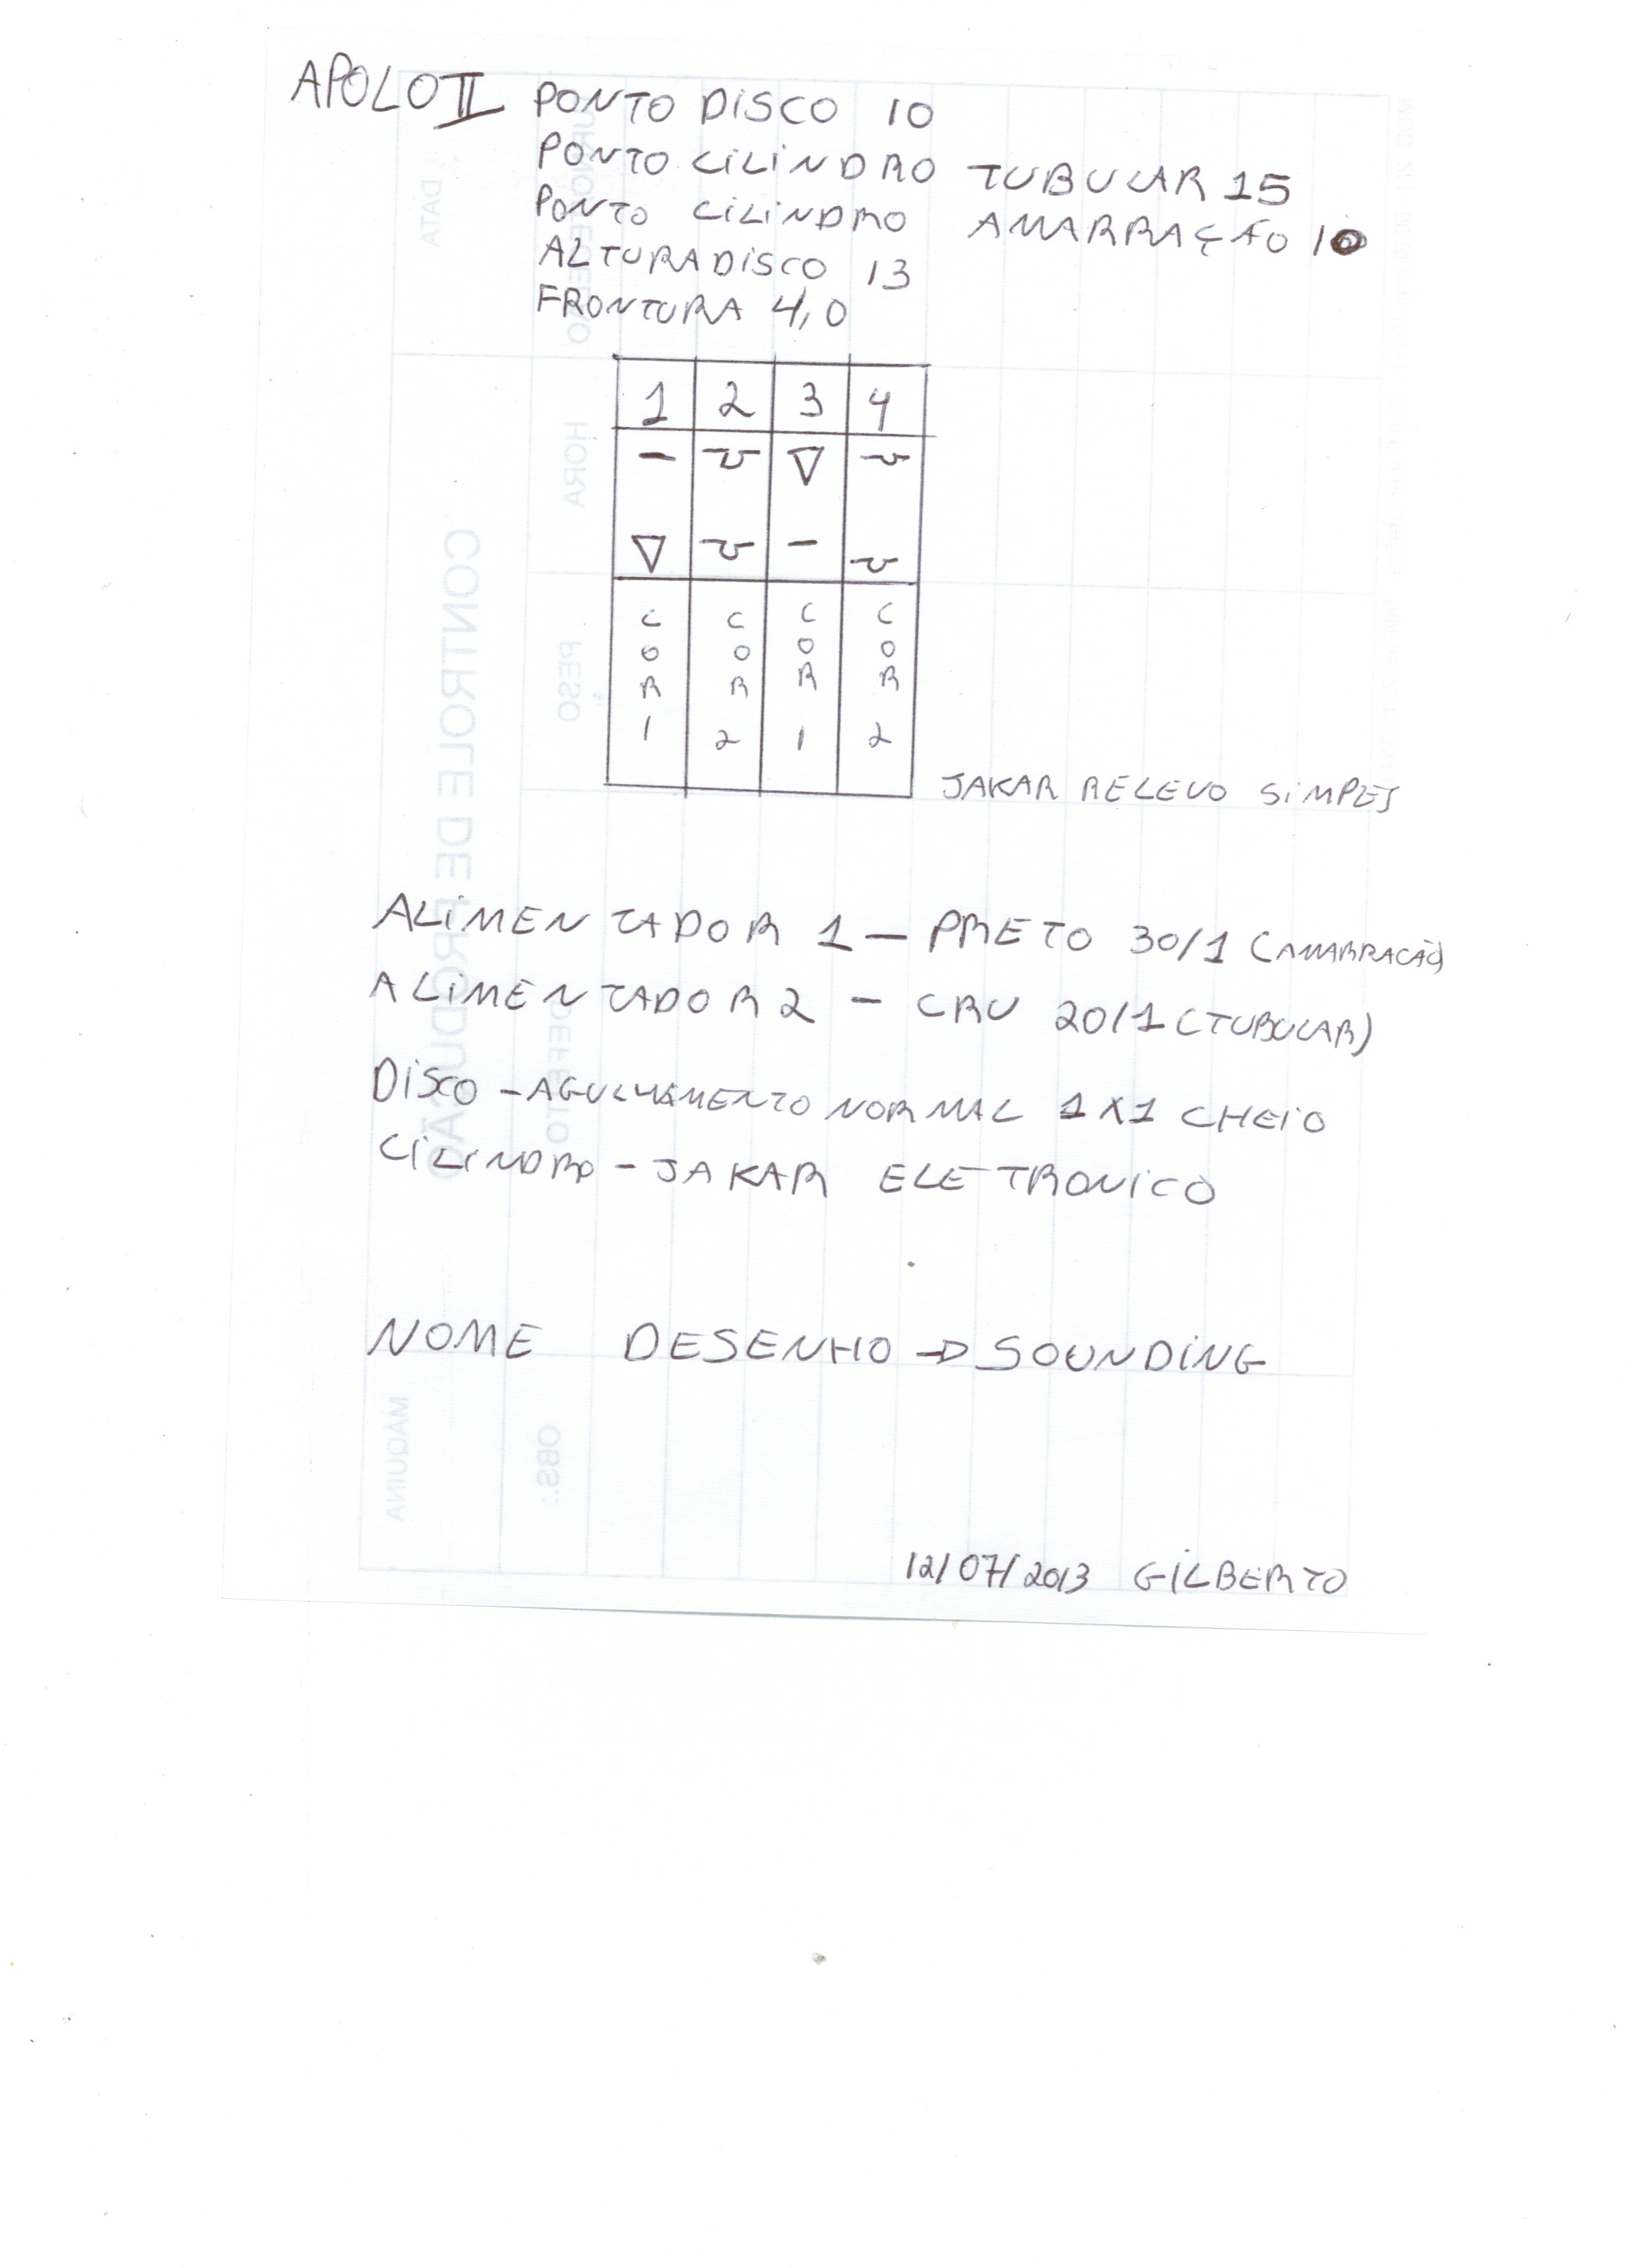 APOLO II PONTO DISCO 10
PONTO CILINDRO TUBULAR 15
PONTO CILINDRO AMARRAÇÃO 10
ALTURA DISCO 13
FRONTURA 4,0
1 2 3 4
COR 1 COR 2 COR 1 COR 2
JAKAR RELEVO SIMPLES
ALIMENTADOR 1 — PRETO 30/1 (AMARRACÃO)
ALIMENTADOR 2 — CRU 20/1 (TUBULAR)
DISCO — AGULHAMENTO NORMAL 1X1 CHEIO
CILINDRO — JAKAR ELETRONICO
NOME DESENHO → SOUNDING
12/07/2013 GILBERTO
DATA
HORA
PESO
DEFEITO
CONTROLE DE PRODUÇÃO
MÁQUINA
OBS.: